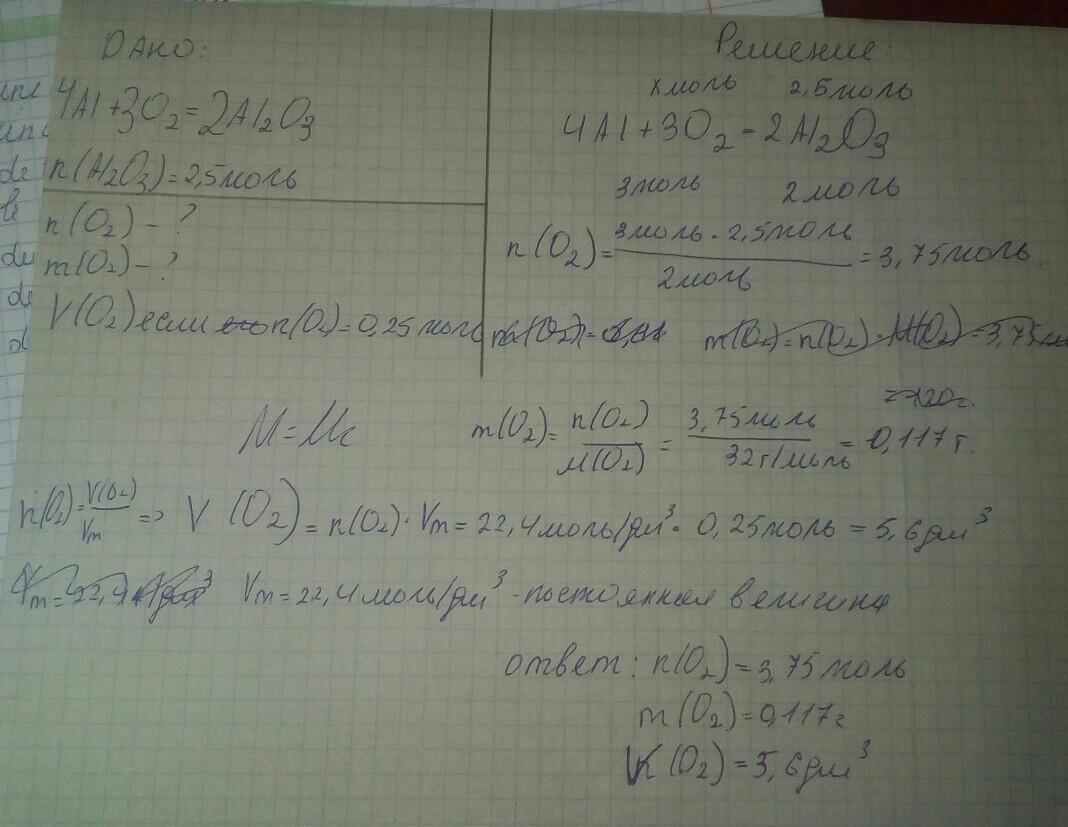 Дано:
4Al + 3O₂ = 2Al₂O₃
n(Al₂O₃) = 2,5 моль
n(O₂) - ?
m(O₂) - ?
V(O₂) если n(O₂) = 0,25 моль
Решение:
x моль 2,5 моль
4Al + 3O₂ = 2Al₂O₃
3 моль 2 моль
n(O₂) = 3 моль · 2,5 моль / 2 моль = 3,75 моль
m(O₂) = n(O₂) · M(O₂) = 3,75
= 120 г.
m(O₂) = n(O₂) / M(O₂) = 3,75 моль / 32 г/моль = 0,117 г.
n(O₂) = V(O₂) / Vm => V(O₂) = n(O₂) · Vm = 22,4 моль/дм³ · 0,25 моль = 5,6 дм³
Vm = 22,4 моль/дм³ - постоянная величина
ответ: n(O₂) = 3,75 моль
m(O₂) = 0,117 г
V(O₂) = 5,6 дм³